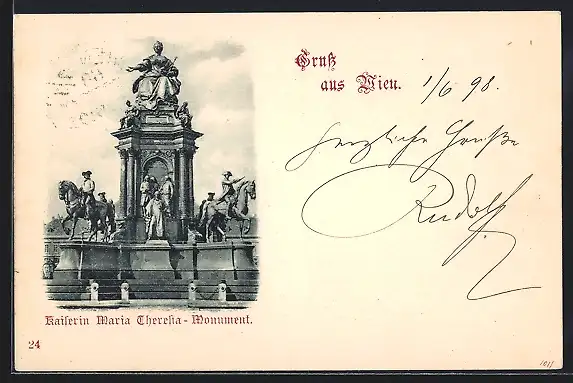 Gruß
aus Wien.
1/6 98.
Herzliche Grüße
Rudolf
Kaiserin Maria Theresia - Monument.
24